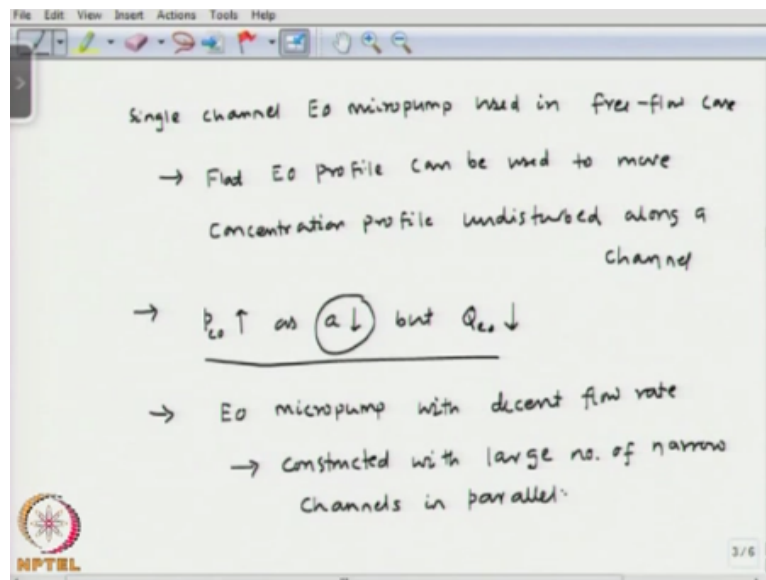 File Edit View Insert Actions Tools Help
Single channel EO micropump used in free-flow case
→ Flat EO profile can be used to move
concentration profile undisturbed along a
channel
→ Peo ↑ as a ↓ but Qeo ↓
→ EO micropump with decent flow rate
→ constructed with large no. of narrow
channels in parallel.
NPTEL
3/6